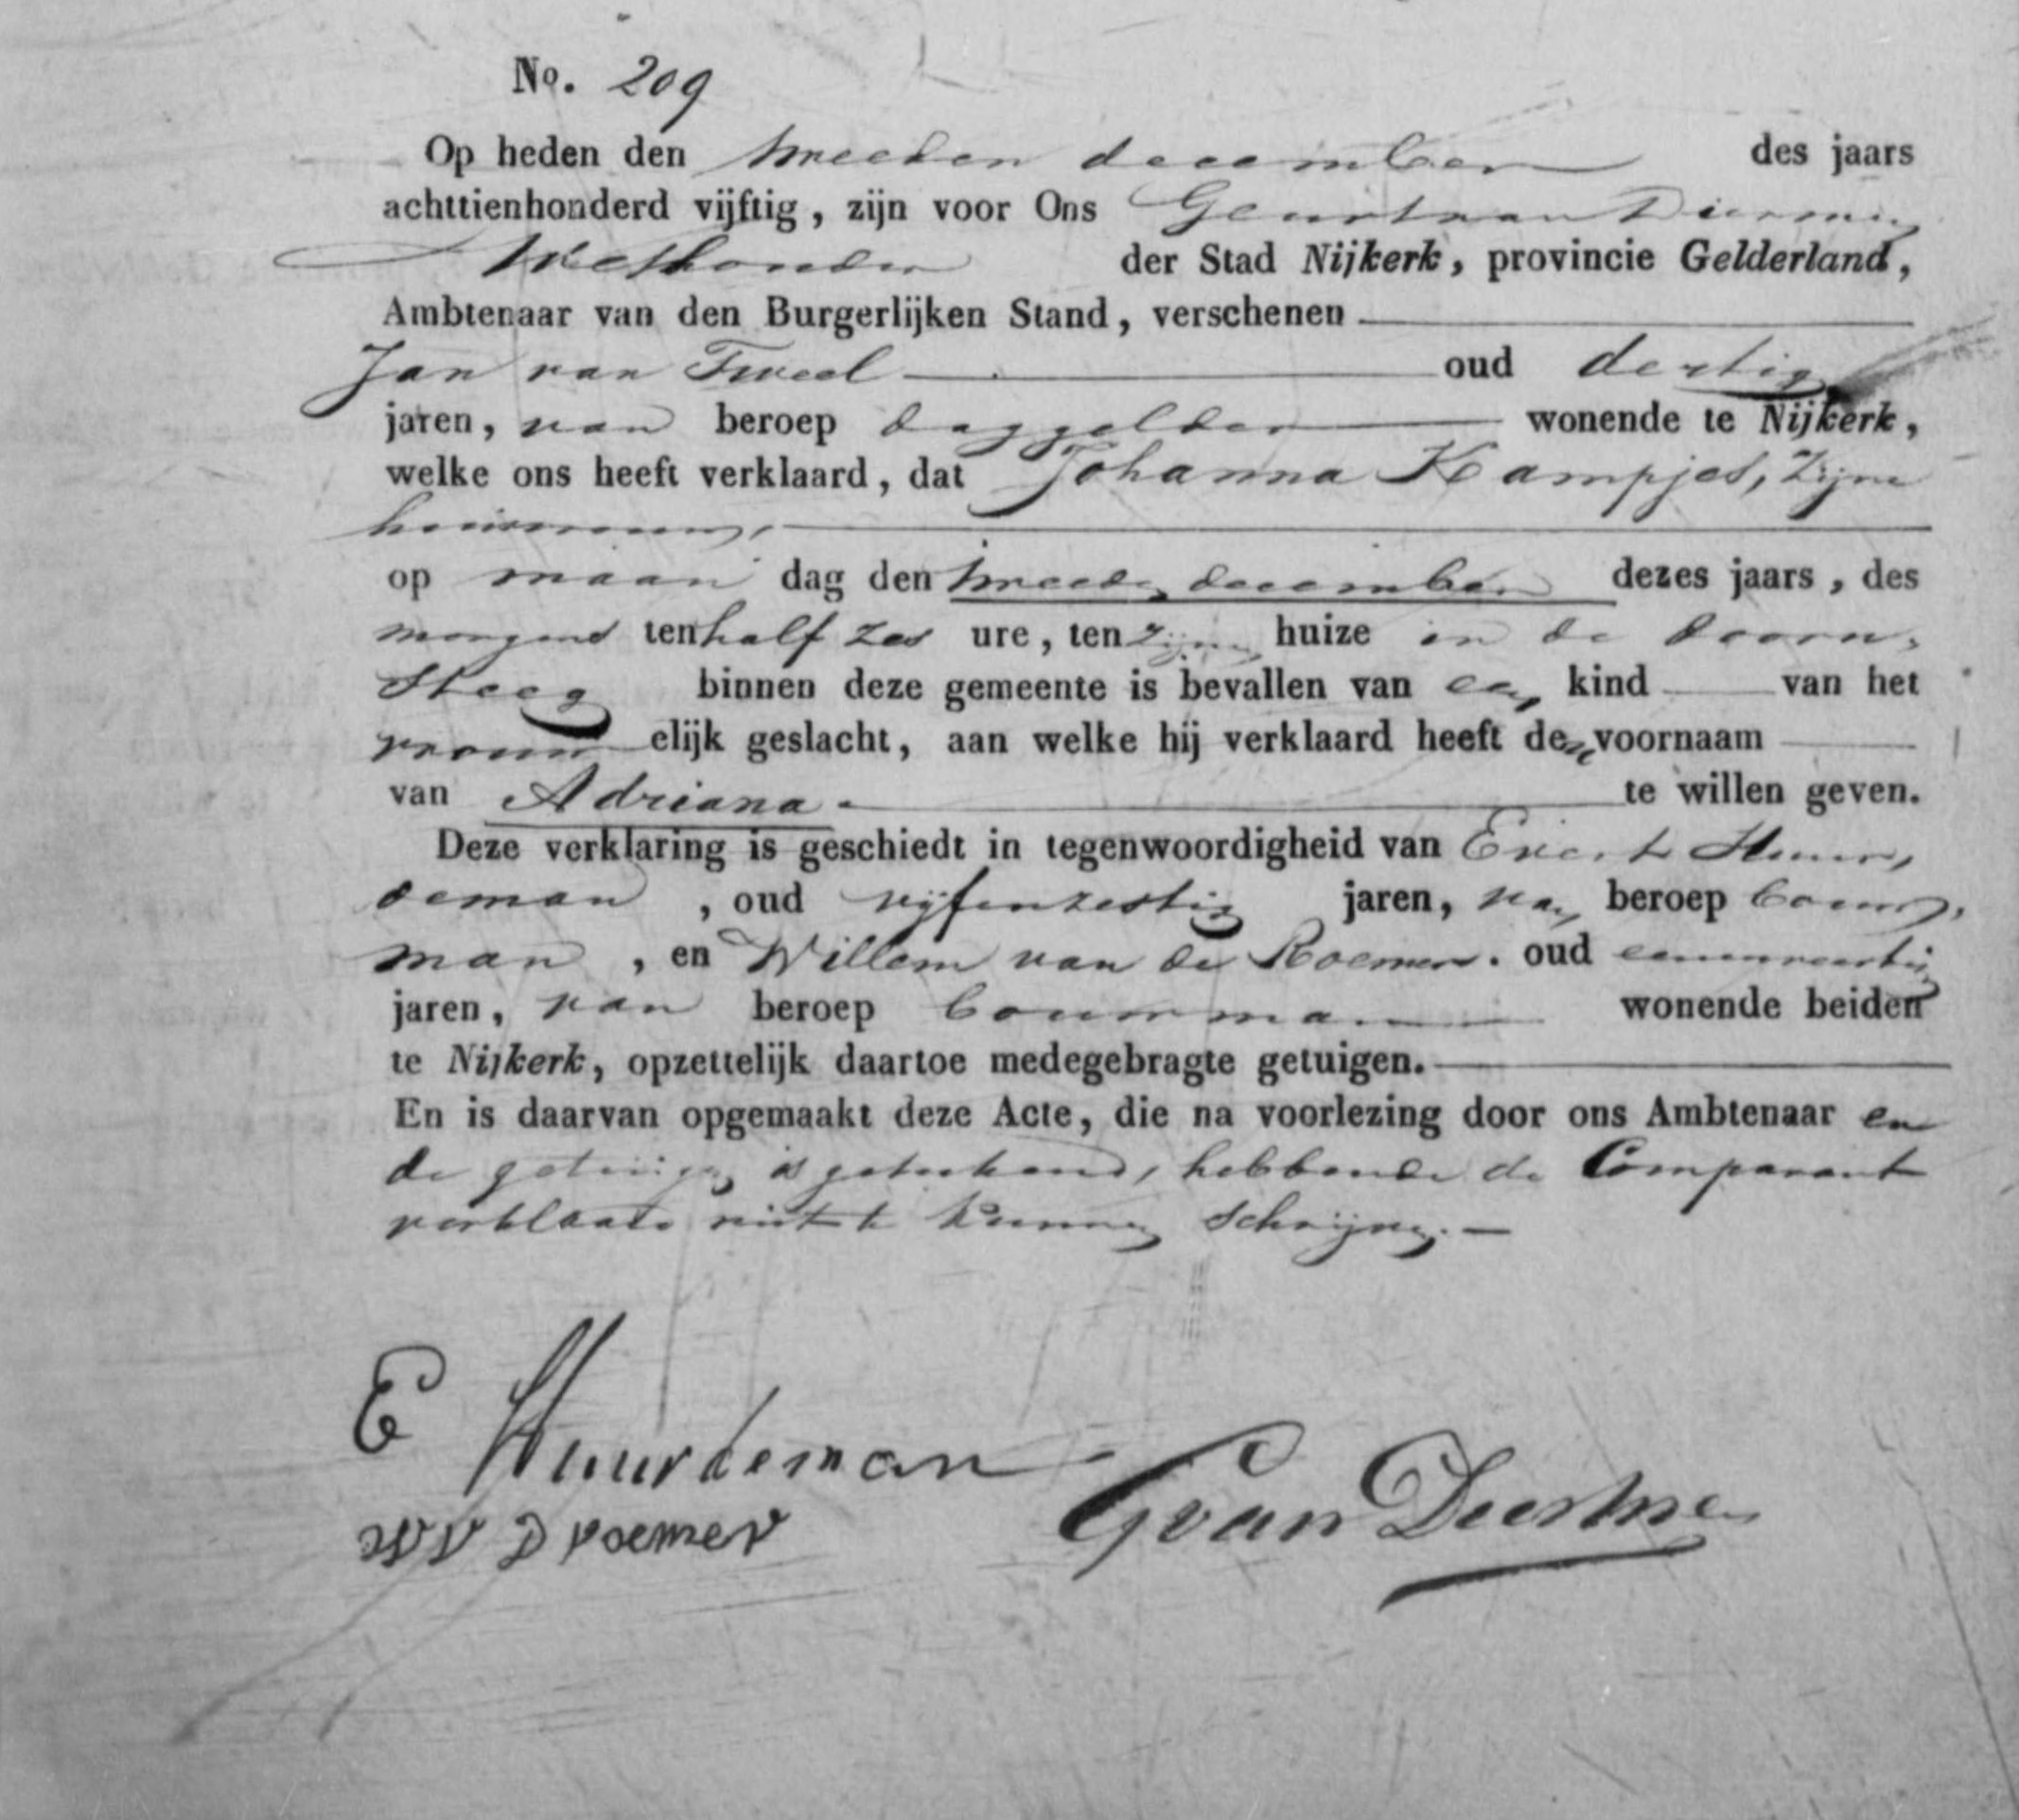 No. 209
Op heden den tweeden december des jaars
achttienhonderd vijftig, zijn voor Ons Geurt van Diermen
Wethouder der Stad Nijkerk, provincie Gelderland,
Ambtenaar van den Burgerlijken Stand, verschenen
Jan van Tweel oud dertig
jaren, van beroep daggelder wonende te Nijkerk,
welke ons heeft verklaard, dat Johanna Kampjes, zijne
huisvrouw,
op maan dag den tweeden december dezes jaars, des
morgens ten half zes ure, ten zijnen huize in de doorn-
steeg binnen deze gemeente is bevallen van een kind van het
vrouw elijk geslacht, aan welke hij verklaard heeft den voornaam
van Adriana te willen geven.
Deze verklaring is geschiedt in tegenwoordigheid van Evert Huur-
deman, oud vijfenzestig jaren, van beroep bouw-
man, en Willem van de Roemer. oud eenenveertig
jaren, van beroep bouwman wonende beiden
te Nijkerk, opzettelijk daartoe medegebragte getuigen.
En is daarvan opgemaakt deze Acte, die na voorlezing door ons Ambtenaar en
de getuigen is geteekend, hebbende de Comparant
verklaard niet te kunnen schrijven.
E Huurdeman
W V D roemer G van Diermen